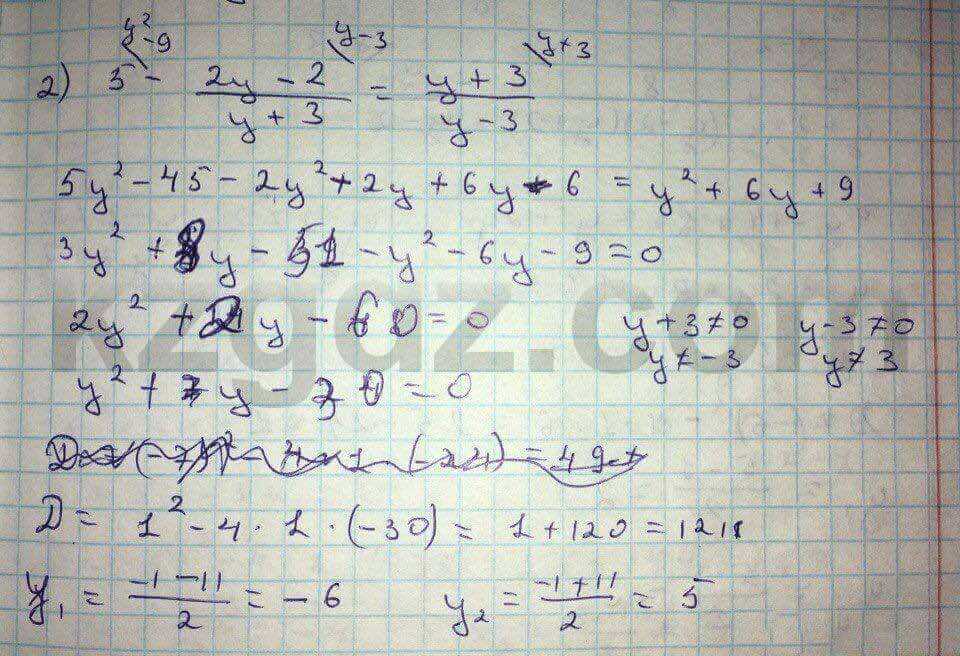 y² - 9   y - 3   y + 3
2) 5 - (2y - 2)/(y + 3) = (y + 3)/(y - 3)
5y² - 45 - 2y² + 2y + 6y - 6 = y² + 6y + 9
3y² + 8y - 51 - y² - 6y - 9 = 0
2y² + 2y - 60 = 0   y + 3 ≠ 0   y - 3 ≠ 0
y² + y - 30 = 0   y ≠ -3   y ≠ 3
D = 1² - 4 · 1 · (-30) = 1 + 120 = 121
y₁ = (-1 - 11)/2 = -6   y₂ = (-1 + 11)/2 = 5
kzgdz.com